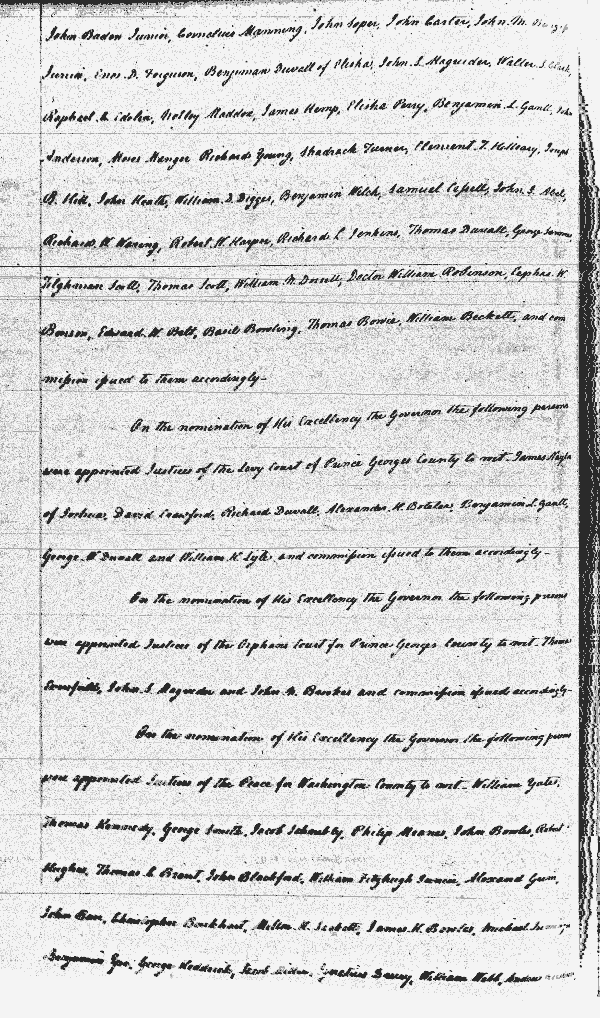 John Baden Junior, Cornelius Manning, John Soper, John Carter, John M.
Junior, Enos D. Ferguson, Benjamin Duvall of Elisha, John S. Magruder, Walter S.
Raphael C. Edelin, Notley Maddox, James Kemp, Elisha Perry, Benjamin L. Gantt, John
Anderson, Moses Richard Young, Shadrack Turner, Clement T. Hilleary, Joseph
B. Hill, John Heath, William D. Digges, Benjamin Welch, Samuel John S.
Richard W. Waring, Robert W. Harper, Richard L. Jenkins, Thomas Duvall, George
Tilghman Scott, Thomas Scott, William Doctor William Robinson, Cephas W.
Benson, Edward W. Belt, Basil Bowling, Thomas Bowie, William Beckett, and com
mission issued to them accordingly-
On the nomination of His Excellency the Governor the following persons
were appointed Justices of the Levy Court of Prince Georges County to wit- James
of Joshua, David Crawford, Richard Duvall, Alexander H. Boteler, Benjamin L. Gantt,
George W Duvall and William H. Lyle and commission issued to them accordingly-
On the nomination of His Excellency the Governor the following persons
were appointed Justices of the Orphans Court for Prince Georges County to wit- Thomas
John S. Magruder and John and commission issued accordingly-
On the nomination of His Excellency the Governor the following persons
were appointed Justices of the Peace for Washington County to wit- William Yates,
Thomas Kennedy, George Smith, Jacob Schnebly, Philip Mearns, John Bowles, Robert
Hughes, Thomas C. Brent, John Blackford, William Fitzhugh Junior,
John Barr, Christopher Burkhart, James H. Bowles, Michael
Benjamin George Kedderick, Jacob William Webb, Andrew